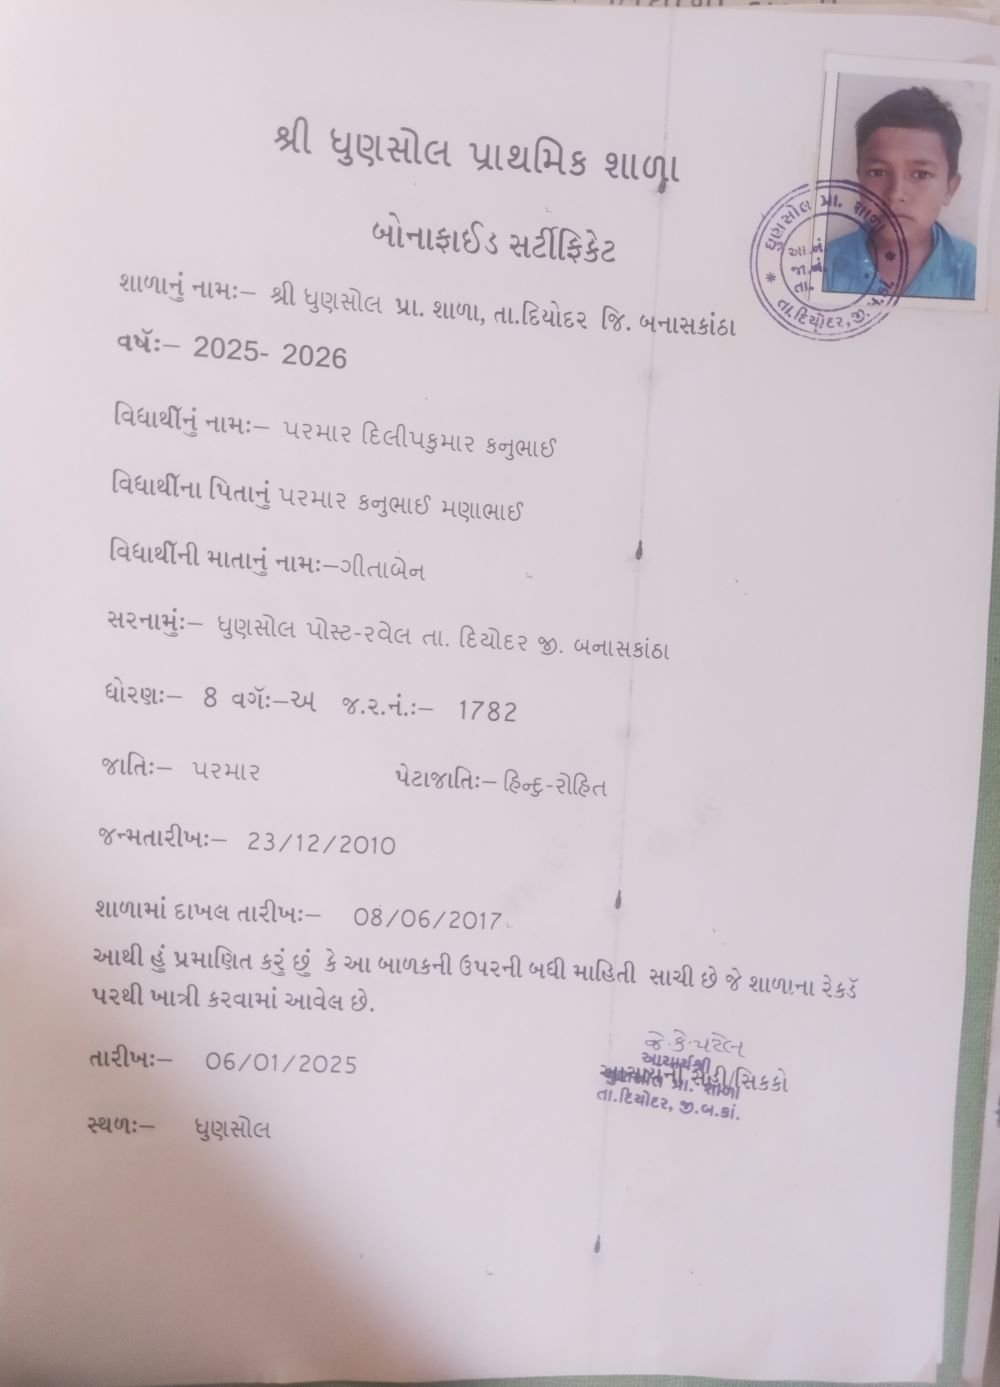 શ્રી ધુણસોલ પ્રાથમિક શાળા
બોનાફાઈડ સર્ટીફિકેટ
ધુણસોલ પ્રા. શાળા
આ.નં.
જા.નં.
તા.
તા.દિયોદર, જી.બ.કાં.
શાળાનું નામઃ– શ્રી ધુણસોલ પ્રા. શાળા, તા.દિયોદર જિ. બનાસકાંઠા
વર્ષૅઃ– 2025- 2026
વિધાર્થીનું નામઃ– પરમાર દિલીપકુમાર કનુભાઈ
વિધાર્થીના પિતાનું પરમાર કનુભાઈ મણાભાઈ
વિધાર્થીની માતાનું નામઃ–ગીતાબેન
સરનામુંઃ– ધુણસોલ પોસ્ટ-રવેલ તા. દિયોદર જી. બનાસકાંઠા
ધોરણઃ– 8 વગૅઃ–અ જ.ર.નં.ઃ– 1782
જાતિઃ– પરમાર પેટાજાતિઃ– હિન્દુ-રોહિત
જન્મતારીખઃ– 23/12/2010
શાળામાં દાખલ તારીખઃ– 08/06/2017
આથી હું પ્રમાણિત કરું છું કે આ બાળકની ઉપરની બધી માહિતી સાચી છે જે શાળાના રેકર્ડૅ
પરથી ખાત્રી કરવામાં આવેલ છે.
તારીખઃ– 06/01/2025
જે.કે.પટેલ
આચાર્યશ્રી
આચાર્યની સહી/સિકકો
ધુણસોલ પ્રા. શાળા
તા.દિયોદર, જી.બ.કાં.
સ્થળઃ– ધુણસોલ